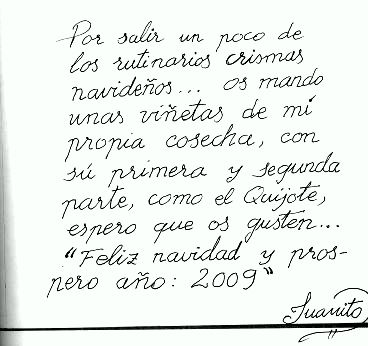 Por salir un poco de
los rutinarios crismas
navideños... os mando
unas viñetas de mi
propia cosecha, con
sú primera y segunda
parte, como el Quijote,
espero que os gusten...
"Feliz navidad y pros-
pero año: 2009"
Juanito